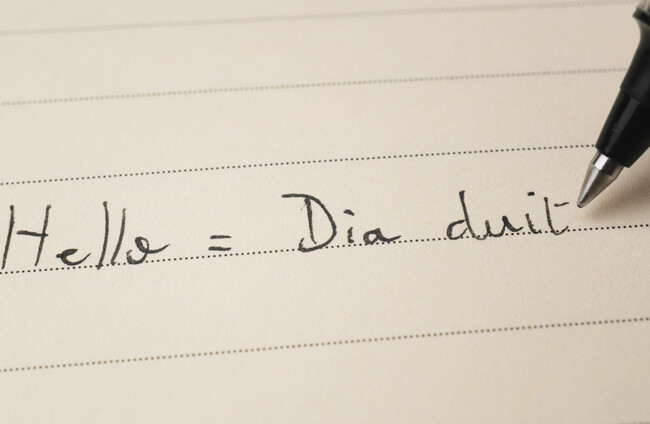 Hello = Dia duit